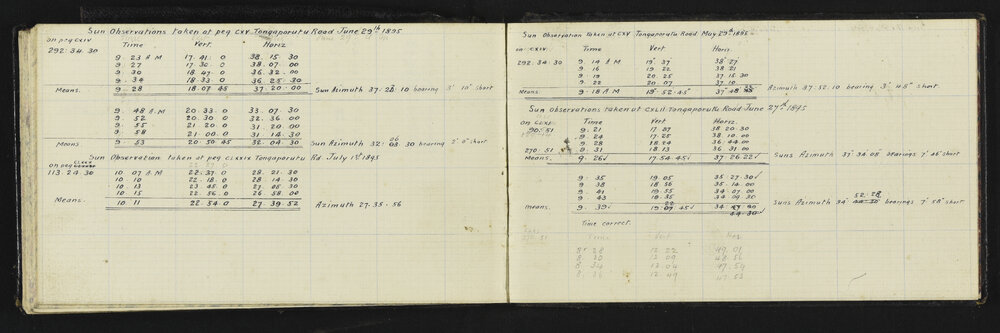 Sun Observations taken at peg CXV Tongaporutu Road June 29th 1895
on peg CXIV
Time Vert. Horiz
292.34.30
9.23 AM 17.41.0 38.15.30
9.27 17.30.0 38.07.00
9.30 18.47.0 36.32.00
9.34 18.33.0 36.25.30
Means. 9.28 18.07.45 37.20.00 Sun Azimuth 37.28.10 bearing 3' 10" short
9.48 AM 20.33.0 33.07.30
9.52 20.30.0 32.36.00
9.55 21.20.0 31.20.00
9.58 21.00.0 31.14.30
Means. 9.53 20.50.45 32.04.30 Sun Azimuth 32.06.30 bearing 2' 0" short
Sun Observation taken at peg CLXXIX Tongaporutu Rd July 1st 1895
on peg
113.24.30 10.07 AM 22.37.0 28.21.30
10.10 22.18.0 28.14.30
10.13 23.45.0 27.05.30
10.15 22.56.0 26.58.00
Means. 10.11 22.54.0 27.39.52 Azimuth 27.35.56
Sun Observation taken at CXV Tongaporutu Road May 29th 1895
on CXIV. Time Vert Horiz.
292.34.30 9.14 AM 19°37 38°27
9.16 19.22 38.21
9.19 20.25 37.15.30
9.22 20.07 37.10
Means. 9.18 AM 19°52.45" 37°48 Azimuth 37.52.10 bearing 3' 45" short.
Sun Observations taken at CXLII Tongaporutu Road June 27th 1895
on CLXI. Time Vert. Horiz.
90.51 9.21 17.27 38.20.30
9.24 17.25 38.10.00
9.28 18.24 36.44.00
270.51 9.31 18.13 36.31.00
Means. 9.26 17.54.45 37.26.22 Suns Azimuth 37°34'08" bearings 7' 46" short
9.35 19.05 35.27.30
9.38 18.56 35.14.00
9.41 19.55 34.07.00
9.43 19.35 34.09.30
means. 9.39 19.07.45 34. Suns Azimuth 34° 52.28 bearings 7' 58" short
44.30
Time correct.
Time Vert Hor
8.28 12.22 49.01
8.30 12.09 48.56
8.34 12.04 47.54
8.36 12.49 47.52